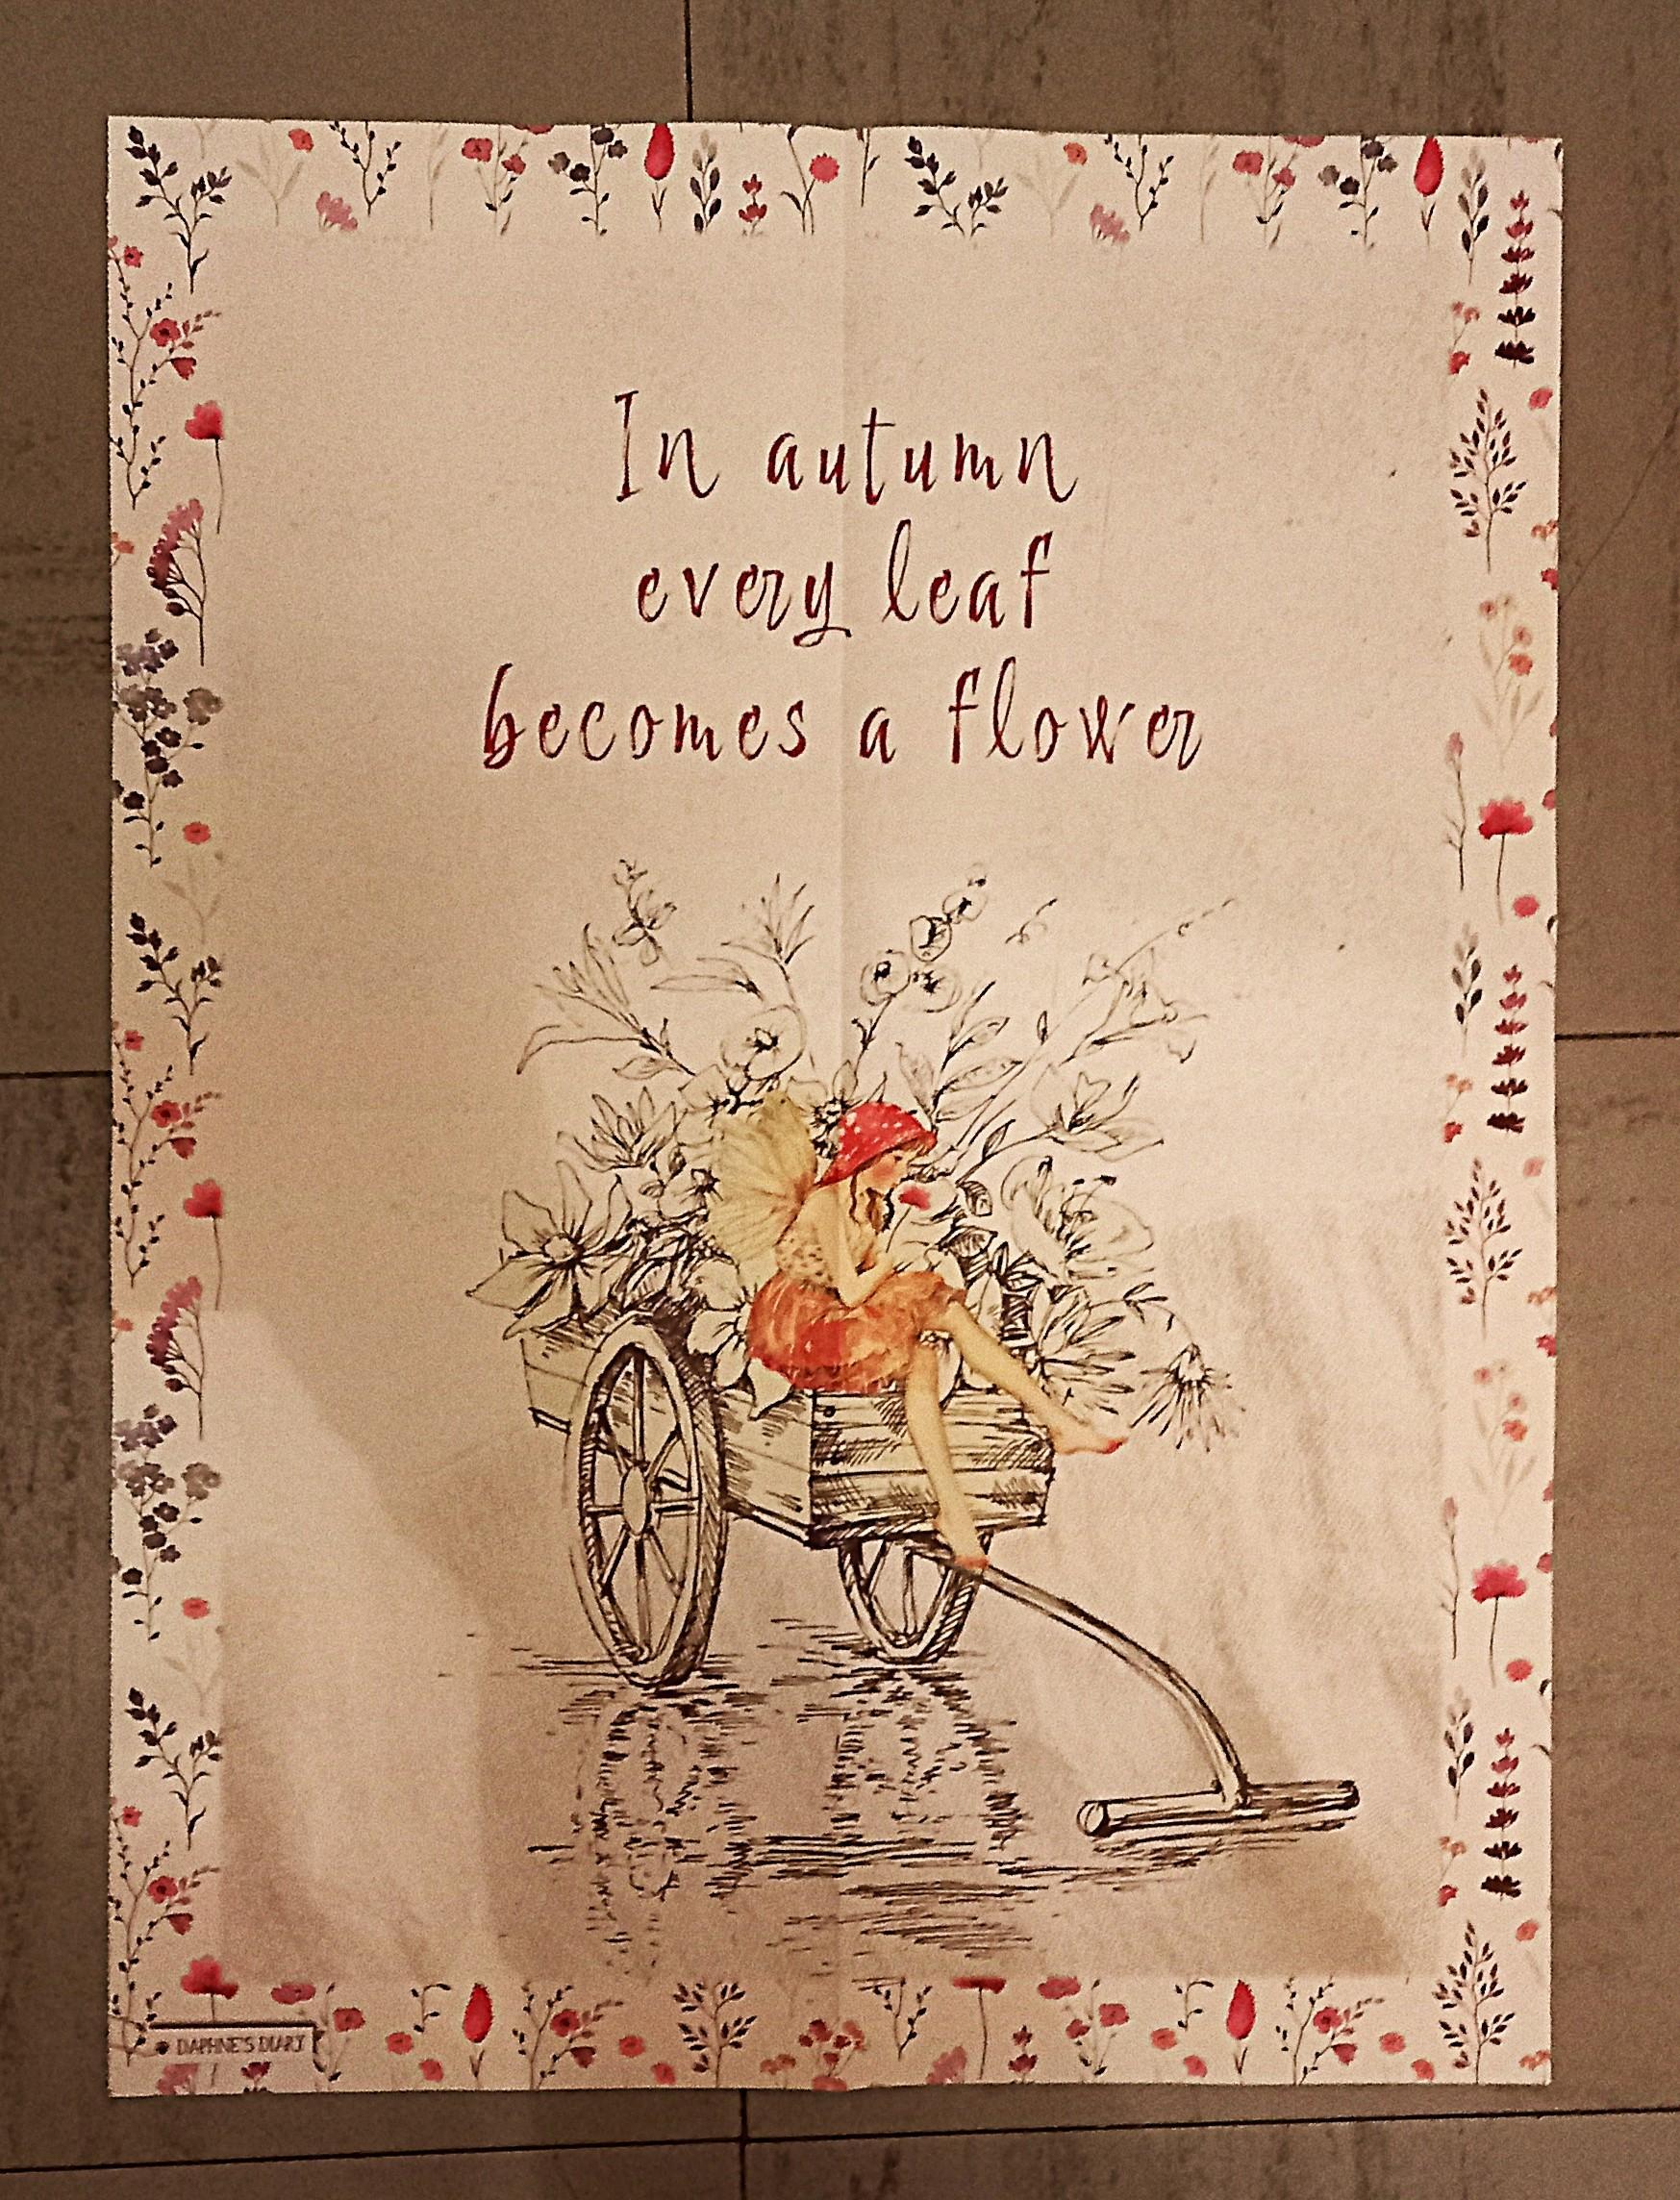 In autumn
every leaf
becomes a flower
DAPHNE'S DIARY